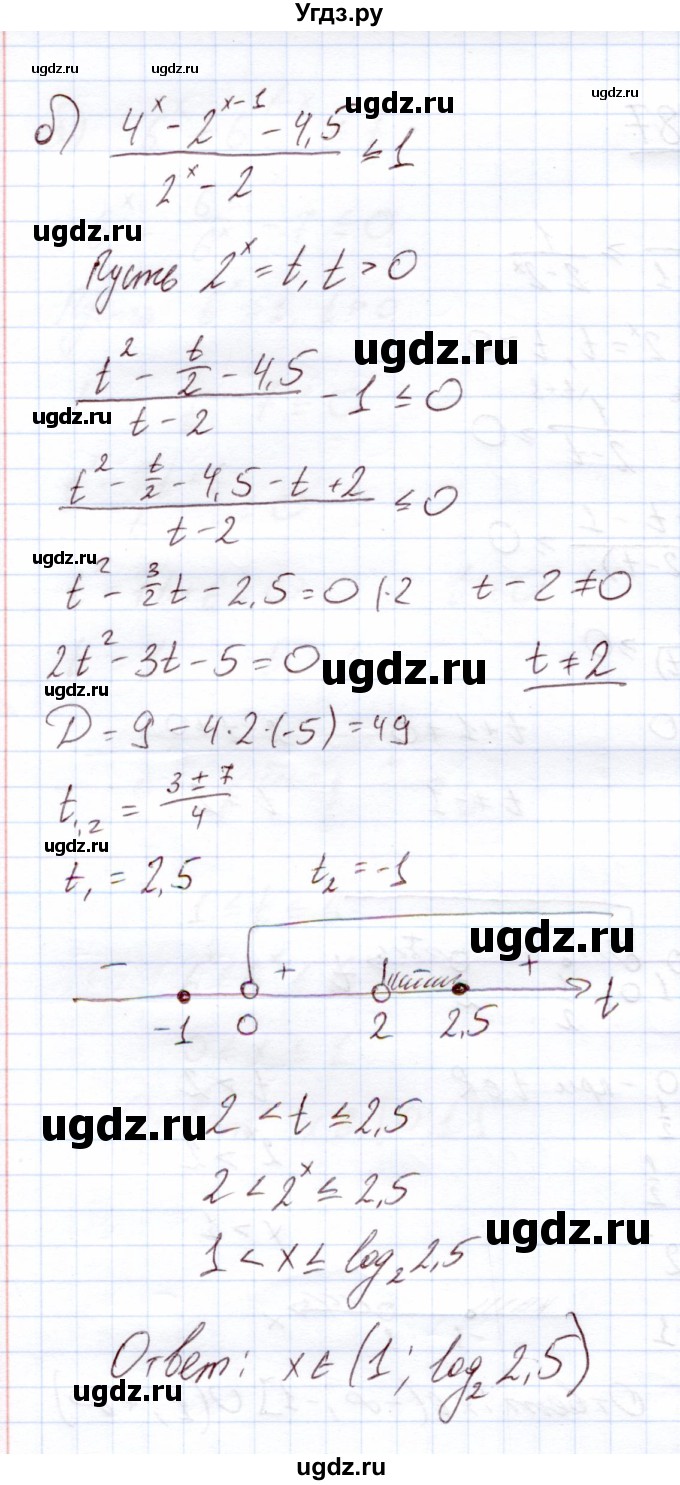 Угдз.ру
ugdz.ru ugdz.ru ugdz.ru
ugdz.ru
б) (4^x - 2^(x-1) - 4,5)/(2^x - 2) ≤ 1
ugdz.ru
Пусть 2^x = t, t > 0
ugdz.ru
(t^2 - t/2 - 4,5)/(t - 2) - 1 ≤ 0
ugdz.ru
(t^2 - t/2 - 4,5 - t + 2)/(t - 2) ≤ 0
ugdz.ru
t^2 - 3/2 t - 2,5 = 0 |·2 t - 2 ≠ 0
2t^2 - 3t - 5 = 0 ugdz.ru t ≠ 2
ugdz.ru
D = 9 - 4·2·(-5) = 49
t1,2 = (3 ± 7)/4
ugdz.ru
t1 = 2,5 t2 = -1
ugdz.ru
- + +
-1 0 2 2,5 t
ugdz.ru
2 < t ≤ 2,5
2 < 2^x ≤ 2,5
ugdz.ru
1 < x ≤ log2 2,5
Ответ: x ∈ (1; log2 2,5)
ugdz.ru
ugdz.ru